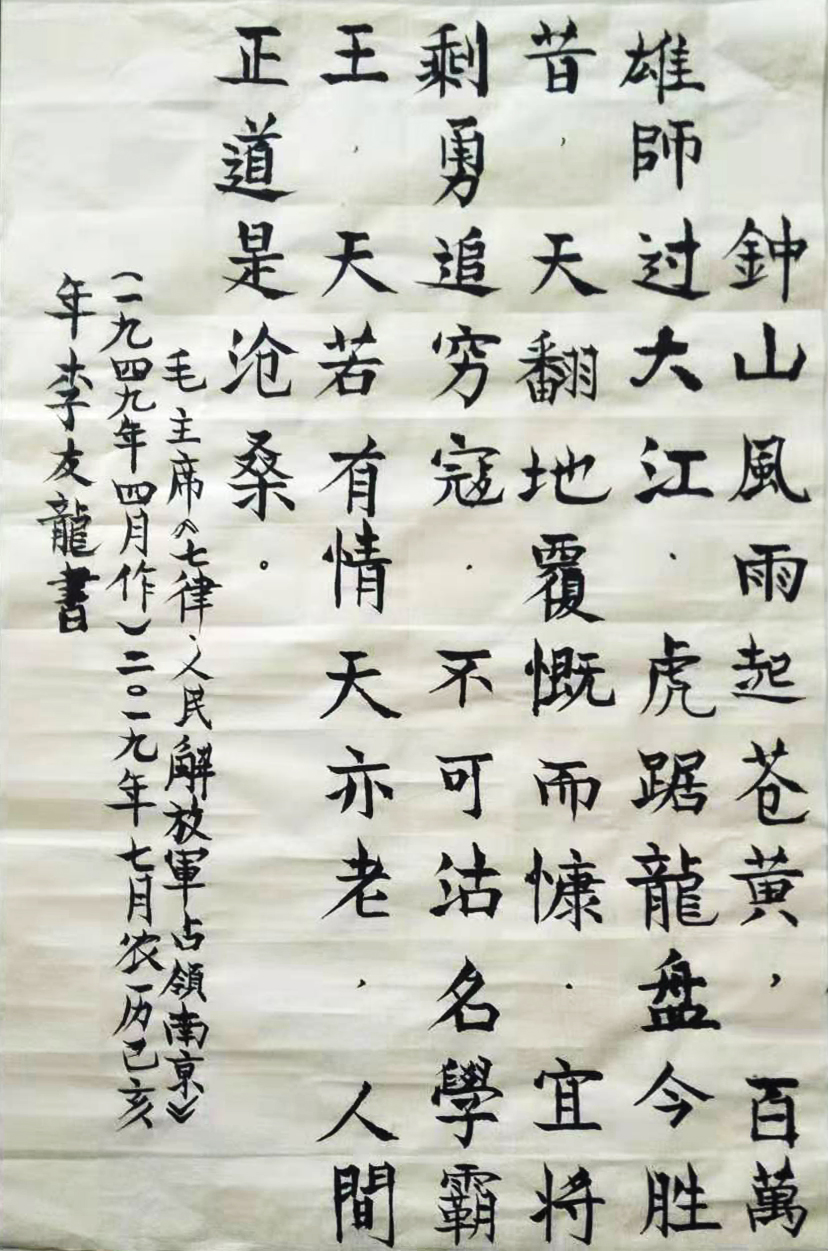 鈡山風雨起苍黄，百萬
雄師过大江．虎踞龍盘今胜
昔，天翻地覆慨而慷．宜将
剩勇追穷寇．不可沽名學霸
王，天若有情天亦老，人間
正道是沧桑。
毛主席《七律、人民解放軍占領南京》
(一九四九年四月作)二○一九年七月农历己亥
年李友龍書